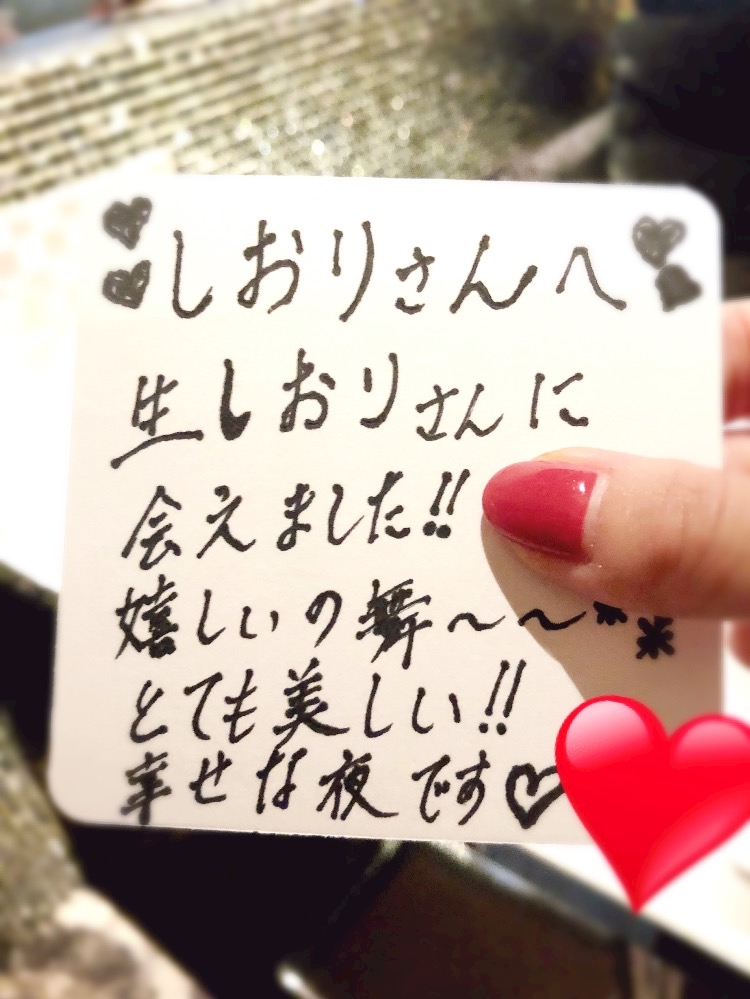 しおりさんへ
生しおりさんに
会えました!!
嬉しいの舞〜〜**
とても美しい!!
幸せな夜です♡